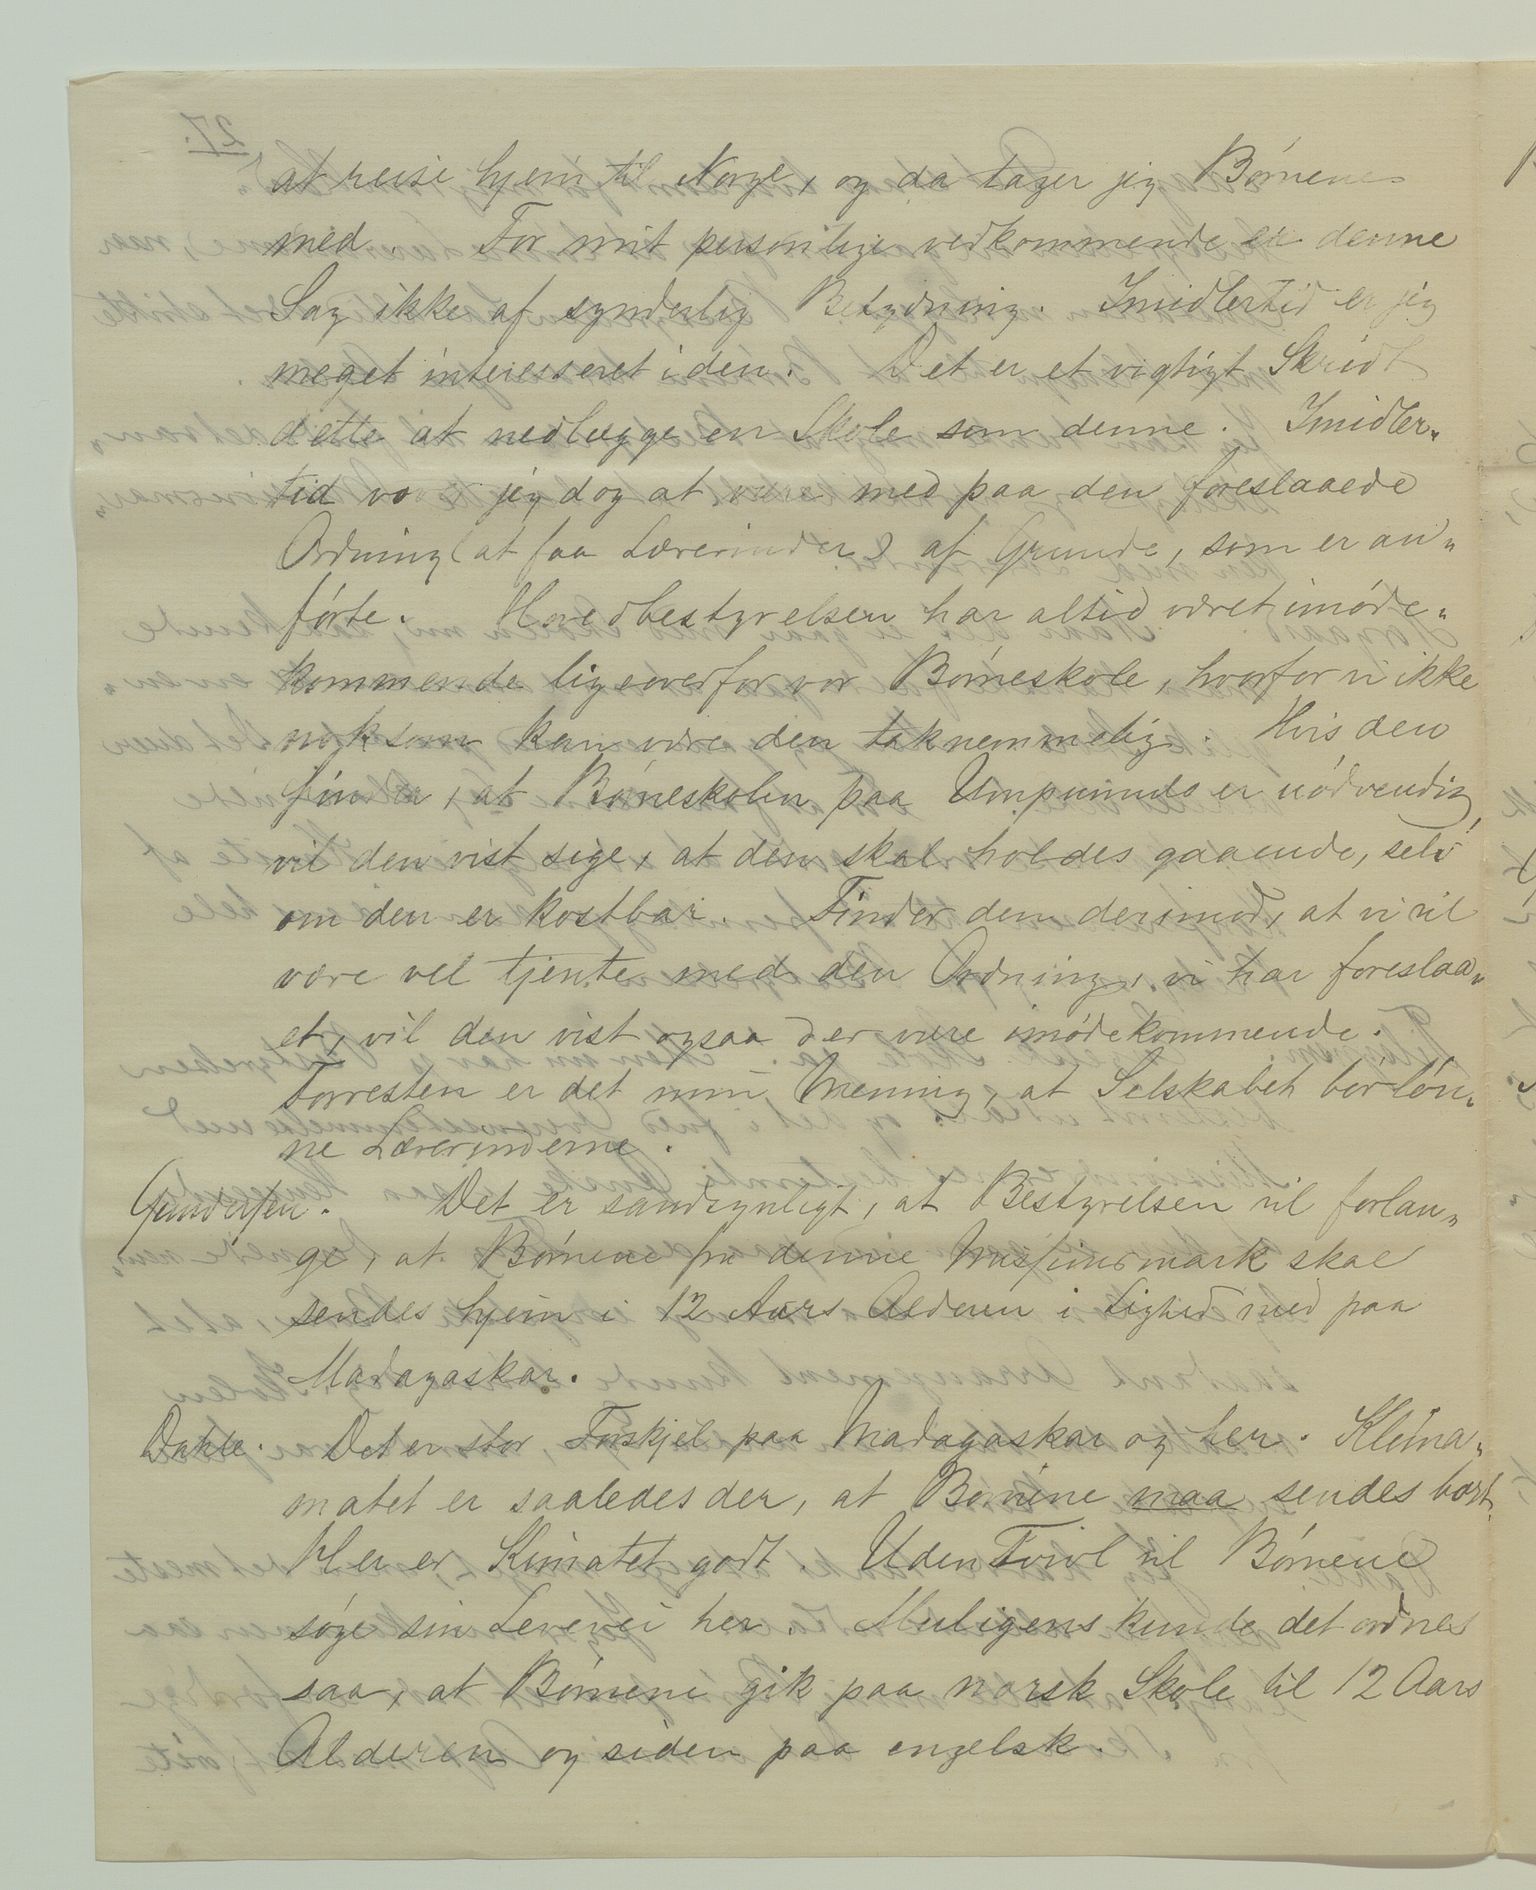 at reise hjem til Norge, og da tager jeg Børnene
med. For mit personlige vedkommende er denne
Sag ikke af synderlig Betydning. Imidlertid er jeg
meget interesseret i den. Det er et vigtigt Skridt
dette at nedlægge en Skole som denne. Imidler-
tid vover jeg dog at være med paa den foreslaaede
Ordning (at faa Lærerinder) af Grunde, som er an-
førte. Hovedbestyrelsen har altid været imøde-
kommende ligeoverfor vor Børneskole, hvorfor vi ikke
noksom kan være den taknemmelig. Hvis den
finder, at Børneskolen paa Umpumulo er nødvendig,
vil den vist sige, at den skal holdes gaaende, selv
om den er kostbar. Finder den derimod, at vi vil
være vel tjente med den Ordning, vi har foreslaa-
et, vil den vist ogsaa der være imødekommende.
Forresten er det min Mening, at Selskabet bør løn-
ne Lærerinderne.
Gundersen. Det er sandsynligt, at Bestyrelsen vil forlan-
ge, at Børnene fra denne Missionsmark skal
sendes hjem i 12 Aars Alderen i Lighed med paa
Madagaskar.
Dahle. Det er stor Forskjel paa Madagaskar og her. Klima-
matet er saaledes der, at Børnene maa sendes bort.
Her er Klimatet godt. Uden Tvivl vil Børnene
søge sin Levevei her. Muligens kunde det ordnes
saa, at Børnene gik paa norsk Skole til 12 Aars
Alderen og siden paa engelsk.